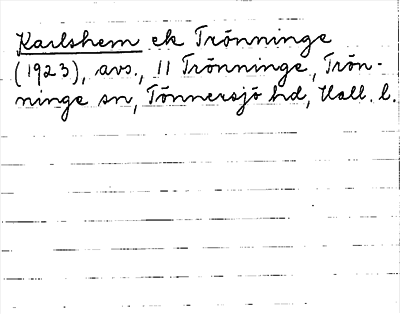 Karlshem ek Trönninge
(1923), avs., 11 Trönninge, Trön-
ninge sn, Tönnersjö hd, Hall. l.